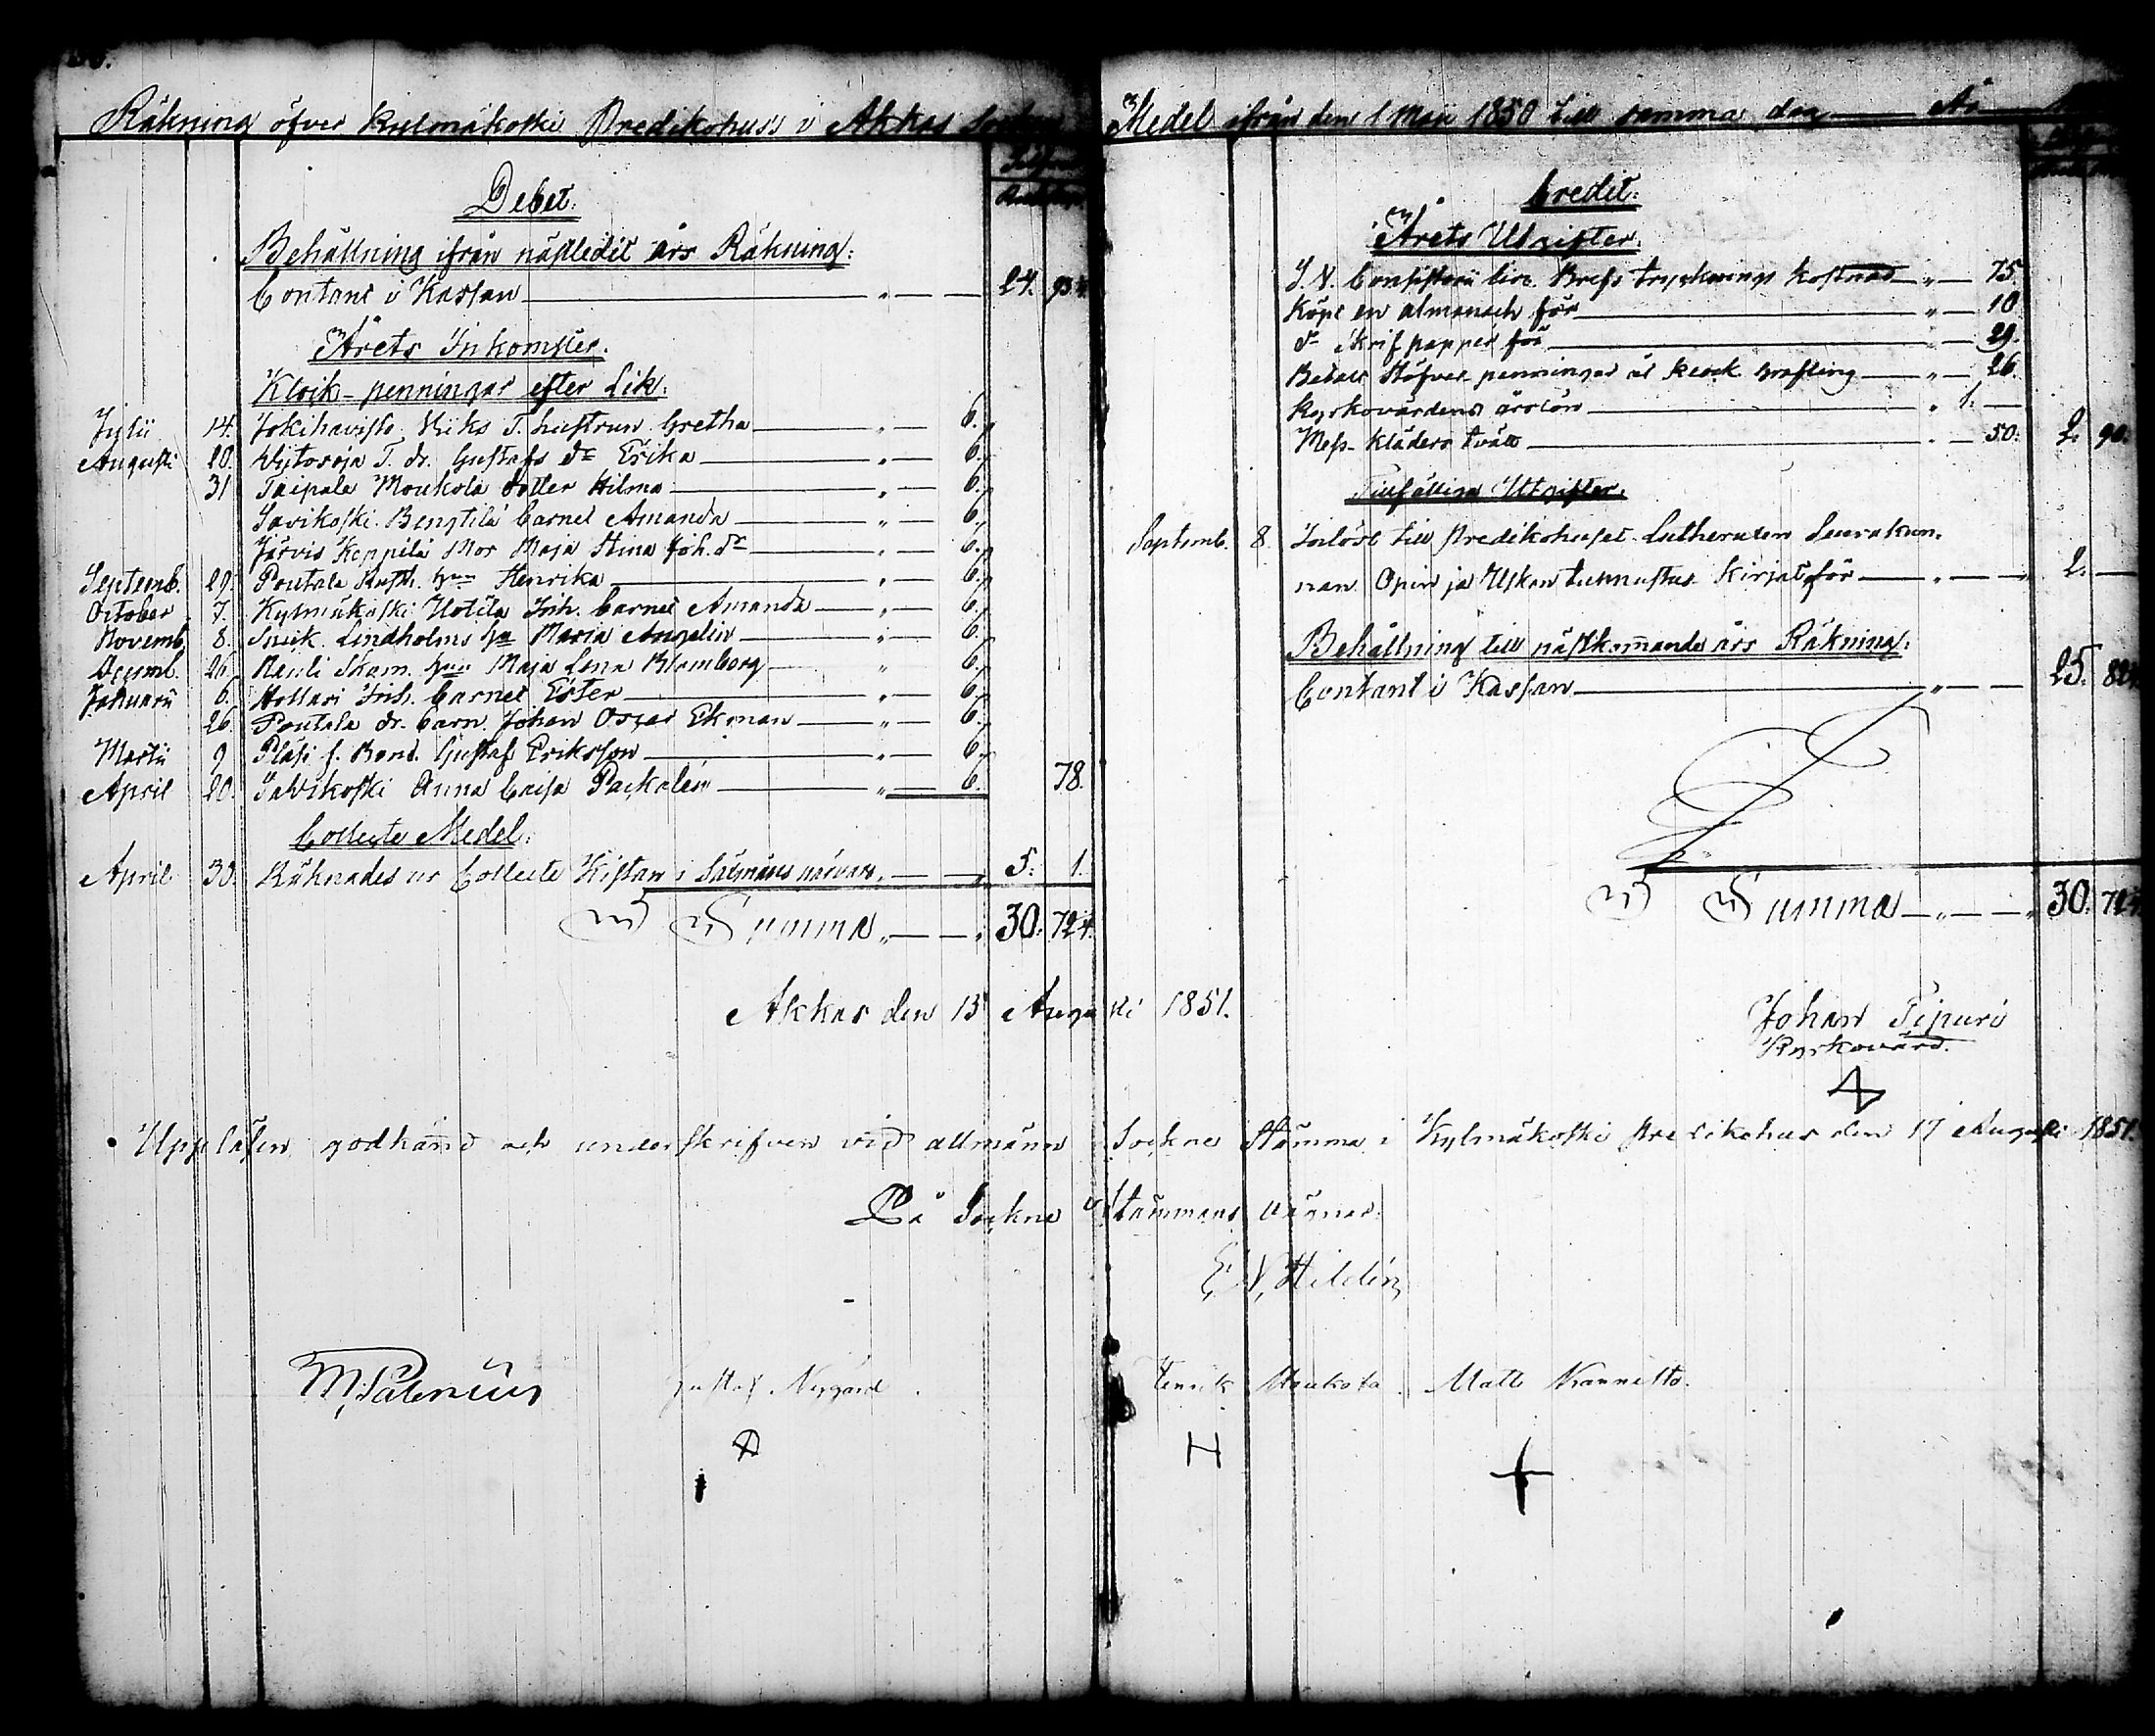 Räkning öfver Kylmäkoski Predikohuss i Akkas Sockn
Debet:
Behållning ifrån nästledit års Räkning:
Contant i Kassan — „ — 24. 93 4.
Årets Inkomster.
Klock-penningar efter Lik:
Julii 14. Jokihavisto Kiks T. hustrun Gretha — „ — 6.
Augusti 20. T. dr. Gustafs dr Erika — „ — 6.
31 Taipale Moukola dotter Hilma — „ — 6.
Savikoski Bengtilä barnet Amanda — „ — 6.
Järvis Keppilä Mor Maja Stina Joh. dr — „ — 6.
Septemb. 29. Poutala Rusth. hun Henrika — „ — 6.
October 7. Kylmäkoski Uotila Inh. barnet Amanda — „ — 6.
Novemb. 8. Snik. Lindholms Maria Angelin — „ — 6.
Decemb. 26. Rauli Skom. hun Maja Lena Blomberg — „ — 6.
Januarii 6. Hollari Inh. barnet Ester — „ — 6.
26. Poutala dr. barn Johan Oscar Ekman — „ — 6.
Martii 9 Pläsi f. Bond. Gustaf Eriksson — „ — 6.
April 20. Savikoski Anna Caisa Packalén — „ — 6. 78.
Collecte Medel:
April 30. Räknades ur Collecte Kistan i Säxmäns närvaro — „ 5: 1.
Summa — „ 30: 72 4.
Medel ifrån den 1 Maii 1850 till samma dag — År
Credit:
Årets Utgifter.
Consistorii Circ. Brefs trycknings kostnad — „ — 75.
Köpt en almanach för — „ — 10
dr Skrifpapper för — „ — 29.
Betalt Stöfvel penningar åt klock. — „ — 26.
Kyrkovärdens årslön — „ 1: —
Mess-kläders tvätt — „ — 50: 2. 90.
Tillfälliga Utgifter.
Septemb. 8. Inlöst till Predikohuset Lutheruxen Seurakun-
nan Opin ja Uskon tunnustus Kirjat för — „ — 2. —
Behållning till nästkommande års Räkning:
Contant i Kassan — „ — 25. 82 4.
Summa — „ — „ 30: 72 4.
Akkas den 15 Augusti 1851.
Johan Tipuri
Kyrkovärd.
Uppläsen, godkänd och underskrifven vid allmänn Sockne Stämma i Kylmäkoski Predikohus den 17 Augusti 1851.
På Sockne Stämmans vägnar:
E. N. Hildén
M. Palenius Gustaf Nygård Henrik Moukola. Matts Kannisto.
H